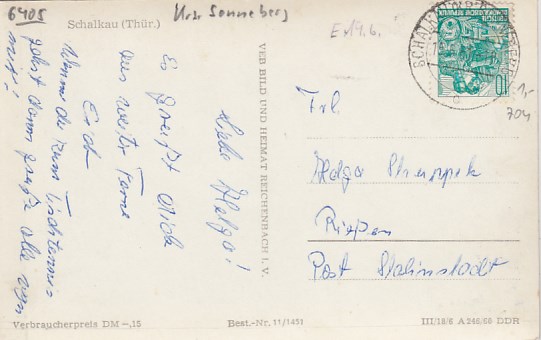 6405
Krs. Sonneberg
Schalkau (Thür.)
Liebe Helga!
Es grüßt Dich
aus weiter Ferne
Erich
Wenn du zum Tischtennis
gehst dann grüße alle von
mir!
VEB BILD UND HEIMAT REICHENBACH I. V.
Verbraucherpreis DM -,15
Best.-Nr. 11/1451
III/18/6 A 246/60 DDR
SCHALKAU
10
1,-
704
Frl.
Helga
Rießen
Post Stalinstadt